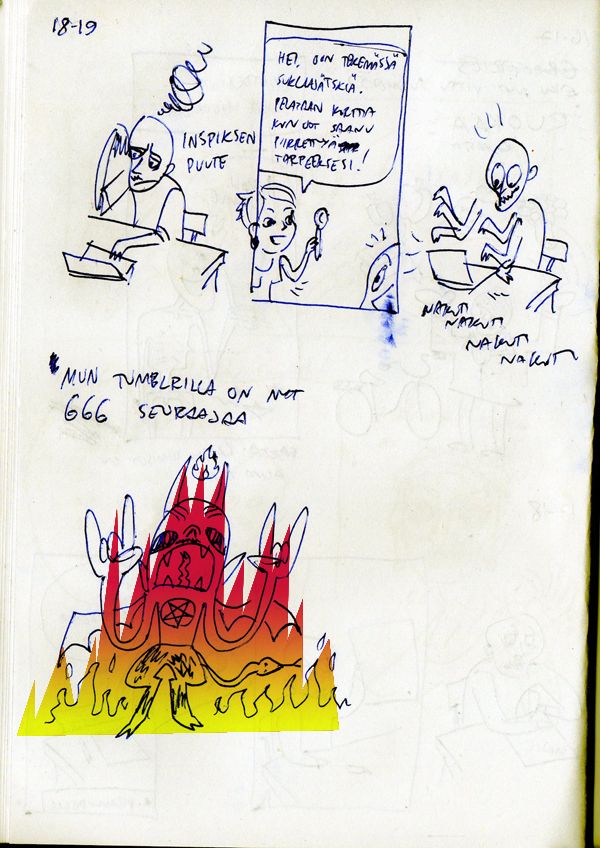 18-19
INSPIKSEN
PUUTE
HEI, OON TEKEMÄSSÄ
SUKLAAJÄTSKIÄ.
PELATAAN KORTTIA
KUN OOT SAANU
PIIRRETTYÄ
TARPEEKSESI!
NAKUTI
NAKUTI
NAKUTI
NAKUTI
MUN TUMBLRILLA ON NYT
666 SEURAAJAA